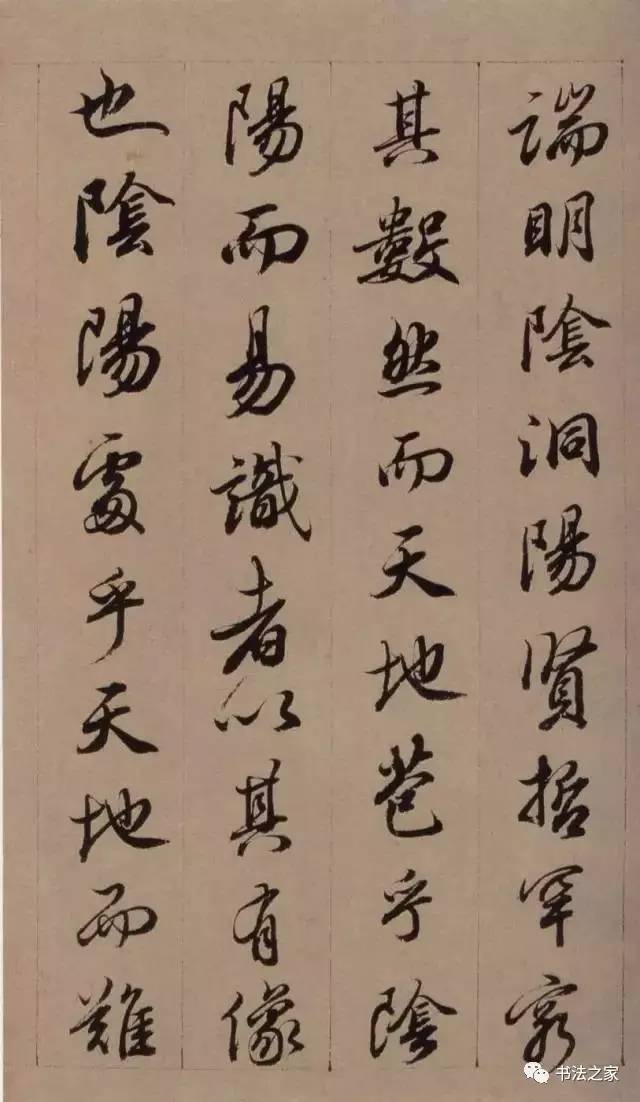 端明陰洞陽賢哲罕窮
其數然而天地苞乎陰
陽而易識者以其有像
也陰陽處乎天地而難
书法之家